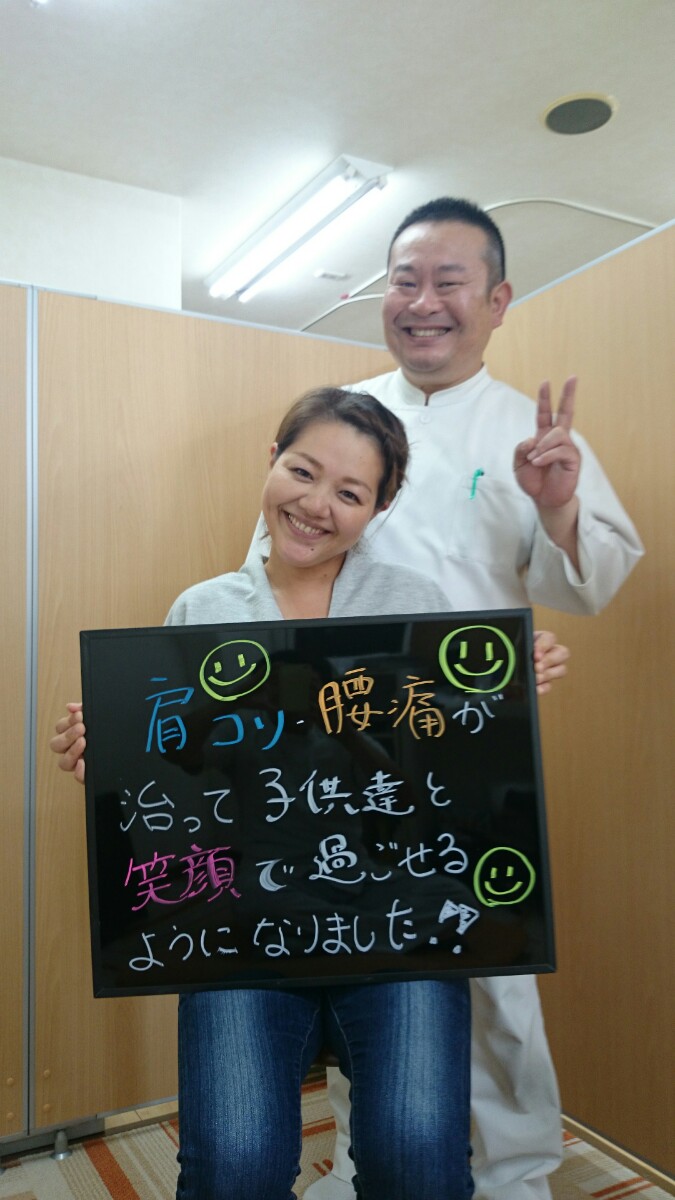 肩コリ・腰痛が
治って子供達と
笑顔で過ごせる
ようになりました!!